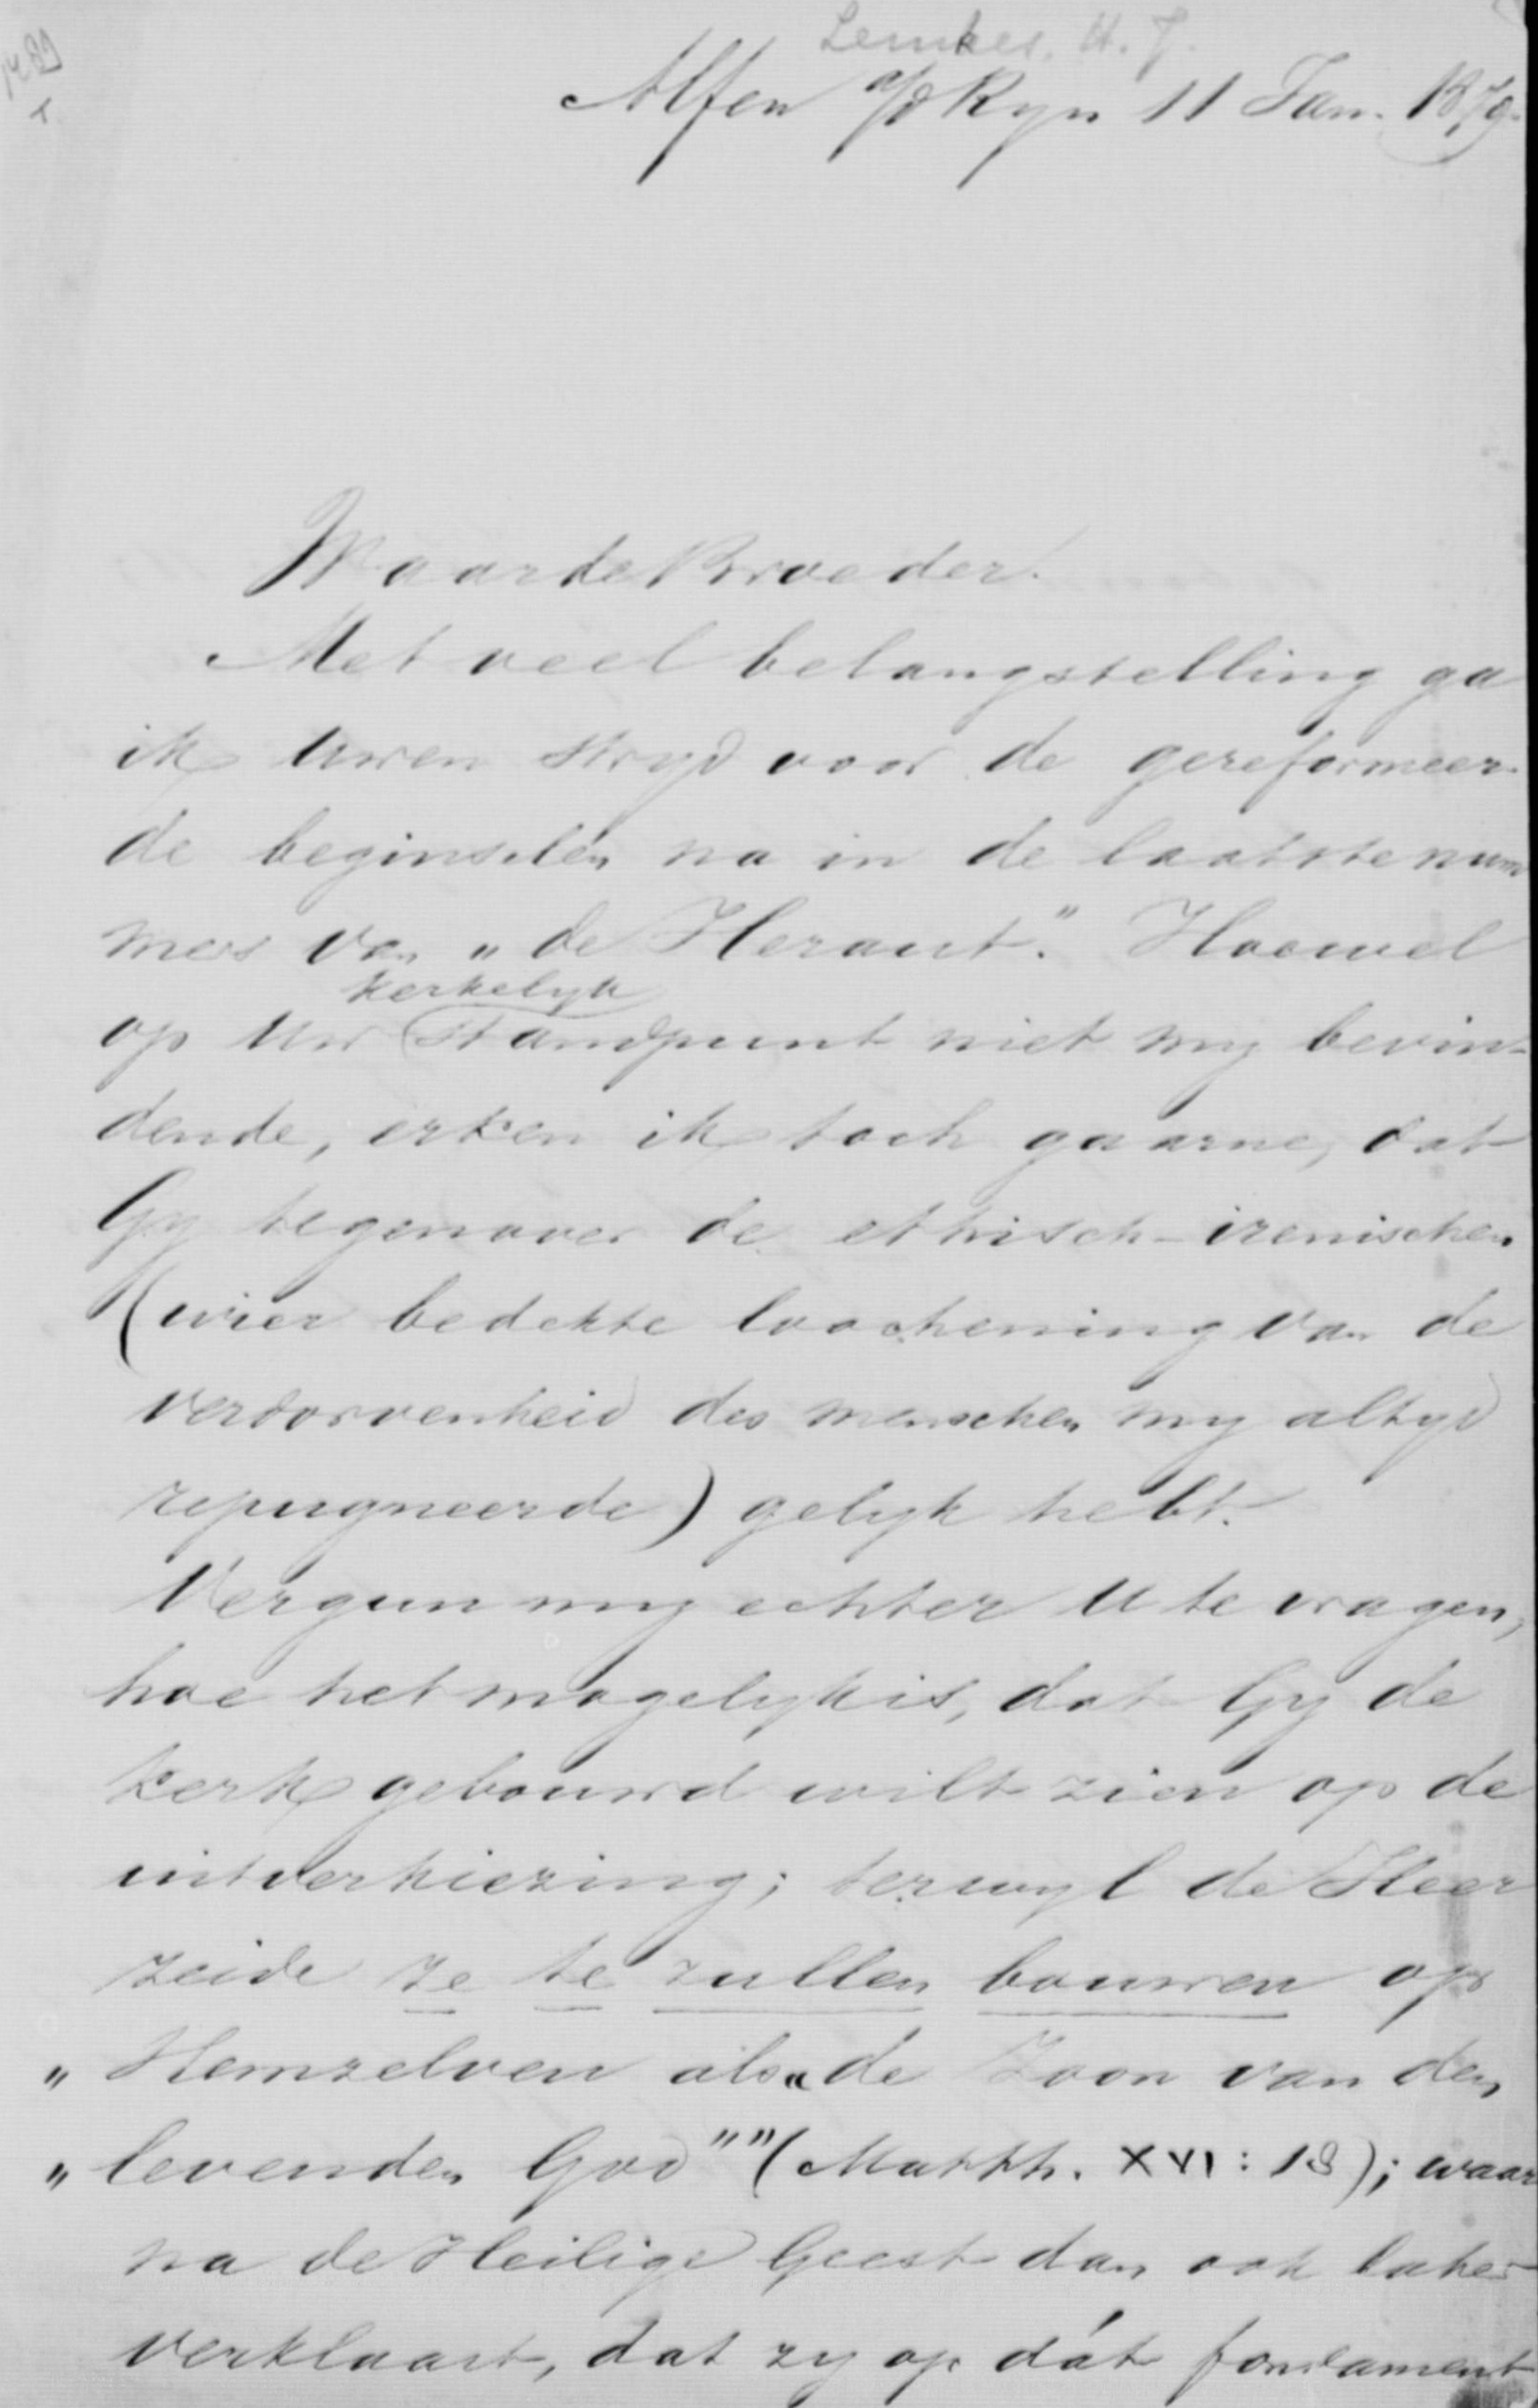 Lemkes, H. J.
Alfen a/d Ryn 11 Jan. 1879.
Waarde Broeder!
Met veel belangstelling ga
ik Uwen stryd voor de gereformeer-
de beginselen na in de laatste num
mers van „de Heraut." Hoewel
kerkelyk
op Uw standpunt niet my bevin-
dende, erken ik toch gaarne, dat
Gy tegenover de ethisch-irenischen
(wier bedekte loochening van de
verdorvenheid des menschen my altyd
repugneerde) gelyk hebt.
Vergun my echter U te vragen,
hoe het mogelyk is, dat Gy de
kerk gebouwd wilt zien op de
uitverkiezing; terwyl de Heer
zeide ze te zullen bouwen op
„Hemzelven als „de Zoon van den
„levenden God"" (Matth. XVI: 18); waar
na de Heilige Geest dan ook later
verklaart, dat zy op dát fondament